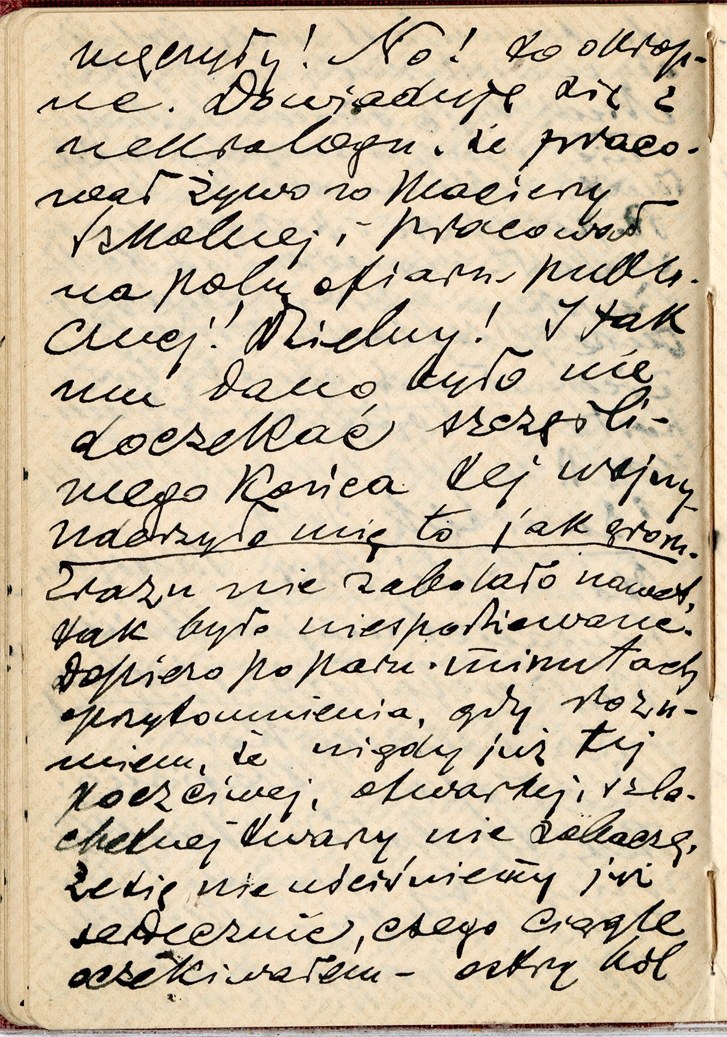 męczyły! No! to okrop-
ne. Dowiaduję się z
nekrologu, że praco-
wał żywo w Macierzy
Szkolnej i pracował
na polu ofiarn. publi-
cznej! Dzielny! I tak
mu dano było nie
doczekać szczęśli-
wego końca tej wojny
uderzyło mię to jak grom.
Zrazu nie zabolało nawet,
tak było niespodziewane.
Dopiero po paru minutach
oprzytomnienia, gdy rozu-
miem, że nigdy już tej
poczciwej, otwartej, szla-
chetnej twarzy nie zobaczę,
że się nie uściśniemy już
serdecznie, czego ciągle
oczekiwałem – ostry ból